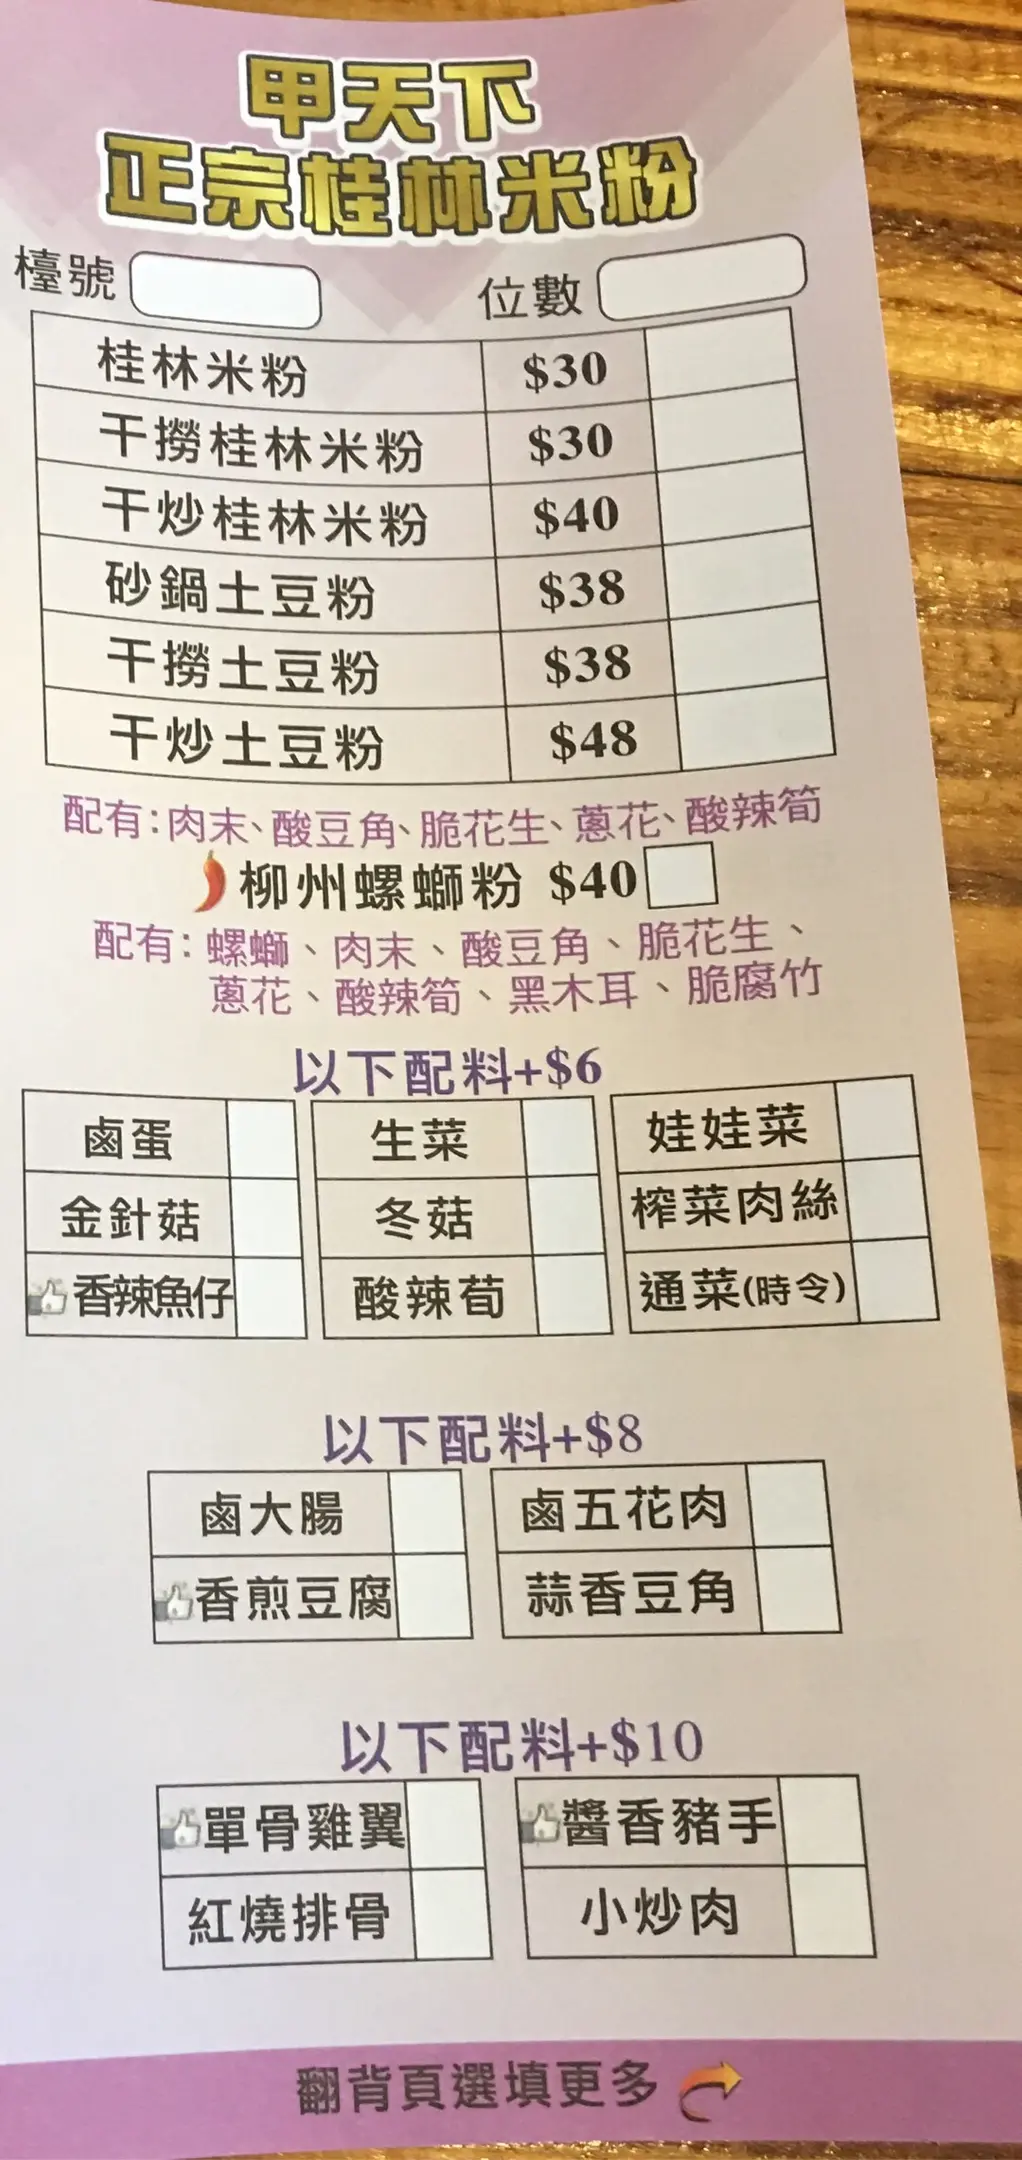 甲天下
正宗桂林米粉
檯號 位數
桂林米粉 $30
干撈桂林米粉 $30
干炒桂林米粉 $40
砂鍋土豆粉 $38
干撈土豆粉 $38
干炒土豆粉 $48
配有:肉末、酸豆角、脆花生、蔥花、酸辣筍
柳州螺螄粉 $40
配有:螺螄、肉末、酸豆角、脆花生、
蔥花、酸辣筍、黑木耳、脆腐竹
以下配料+$6
鹵蛋 生菜 娃娃菜
金針菇 冬菇 榨菜肉絲
香辣魚仔 酸辣荀 通菜(時令)
以下配料+$8
鹵大腸 鹵五花肉
香煎豆腐 蒜香豆角
以下配料+$10
單骨雞翼 醬香豬手
紅燒排骨 小炒肉
翻背頁選填更多